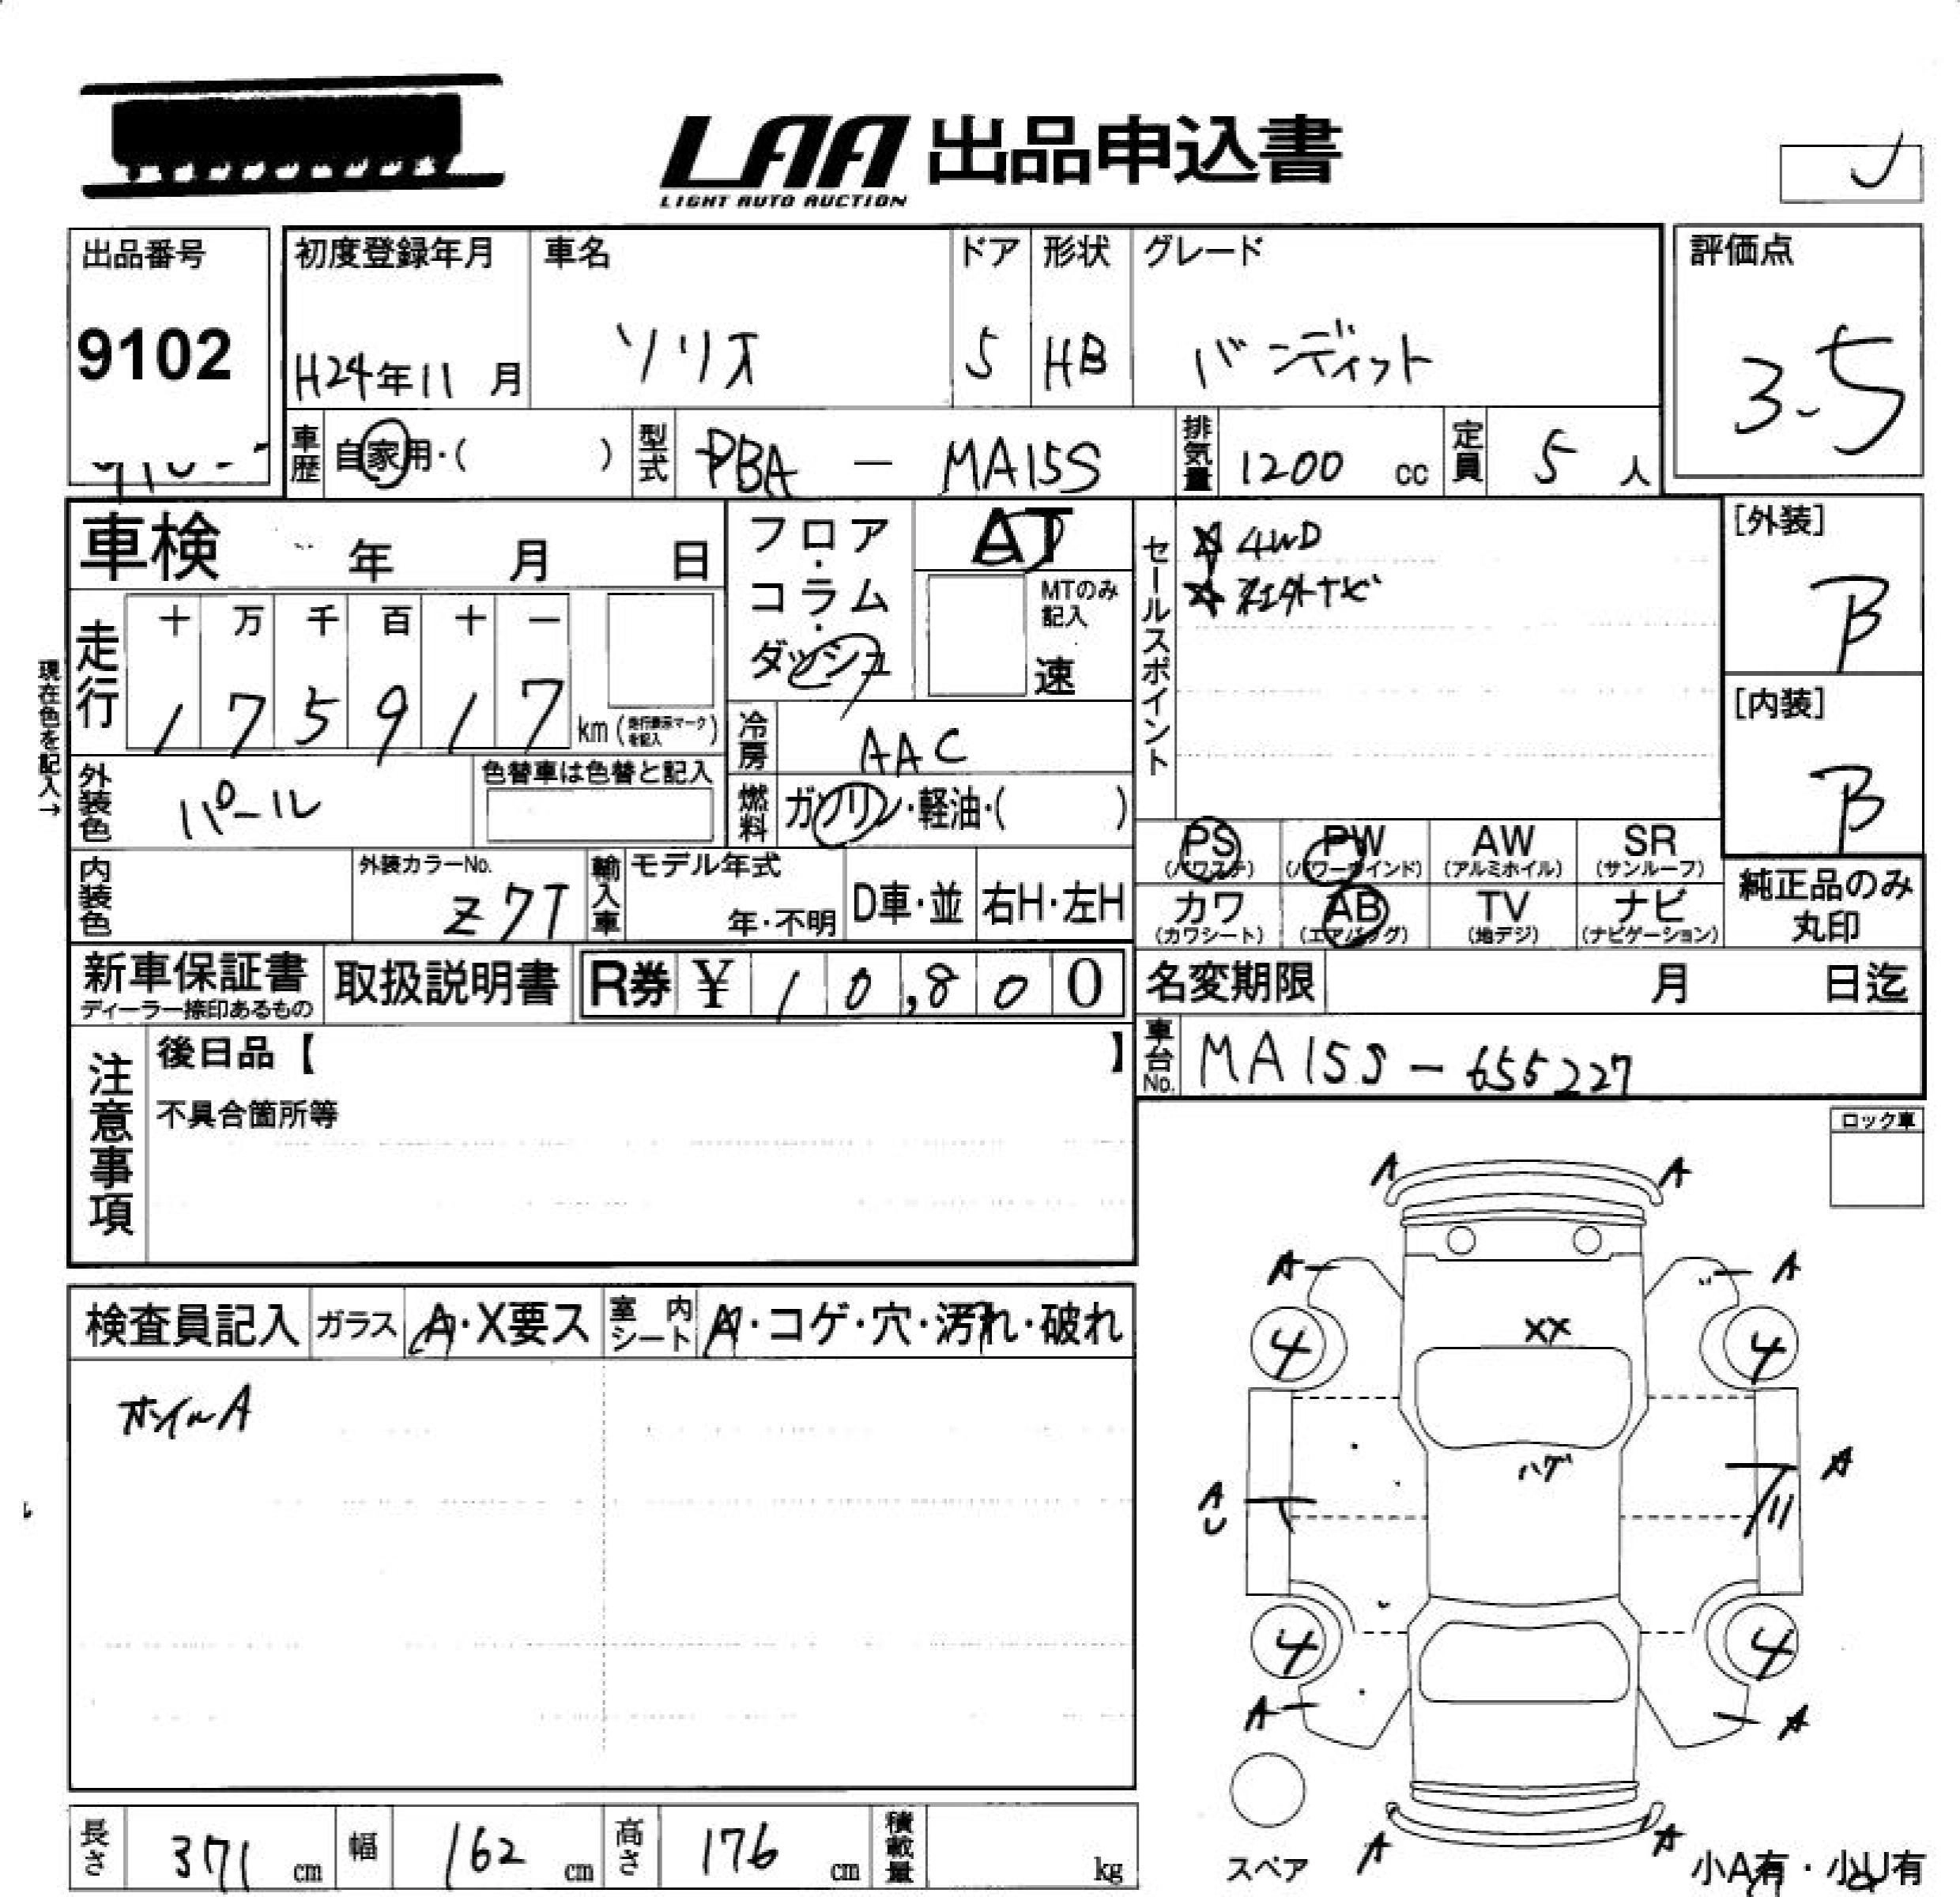 LAA 出品申込書
LIGHT AUTO AUCTION
出品番号 初度登録年月 車名 ドア 形状 グレード 評価点
9102 H24年11月 ソリオ 5 HB バンディット 3.5
車歴 自家用・( ) 型式 PBA － MA15S 排気量 1200 cc 定員 5 人
車検 年 月 日 フロア・コラム・ダッシュ AT
MTのみ記入 速
セールスポイント ☆ 4WD
☆ 社外ナビ
[外装] B
[内装] B
現在色を記入→
走行 十 万 千 百 十 一
1 7 5 9 1 7 km (走行表示マークを記入)
冷房 AAC
外装色 パール 色替車は色替と記入 燃料 ガソリン・軽油・( )
PS PW AW SR
(パワステ) (パワーウインド) (アルミホイル) (サンルーフ)
内装色 外装カラーNo. Z7T 輸入車 モデル年式 年・不明 D車・並 右H・左H
カワ AB TV ナビ
(カワシート) (エアバッグ) (地デジ) (ナビゲーション)
純正品のみ
丸印
新車保証書 取扱説明書 R券 ¥ 10,800
ディーラー捺印あるもの
名変期限 月 日迄
注意事項 後日品【 】
不具合箇所等
車台No. MA15S－655227
ロック車
検査員記入 ガラス A・X要ス 室内シート A・コゲ・穴・汚れ・破れ
ホイルA
A A
A A
XX
4 4
ハゲ
A
A U
4 4
A A
A A
スペア 小A有・小U有
長さ 371 cm 幅 162 cm 高さ 176 cm 積載量 kg